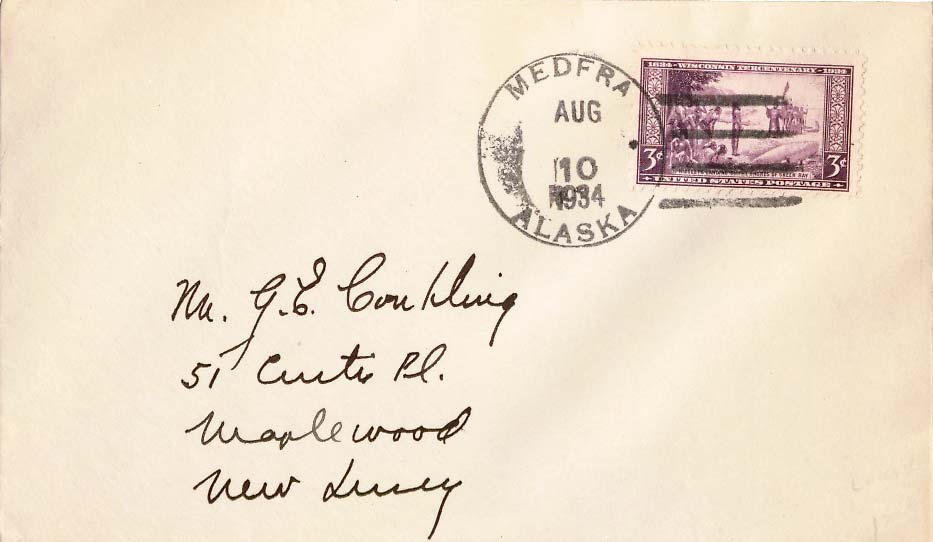 MEDFRA
AUG
10
1934
ALASKA
1634 - WISCONSIN TERCENTENARY - 1934
3¢ 3¢
UNITED STATES POSTAGE
Mr. G.E. Conkling
51 Curtis Pl.
Maplewood
New Jersey